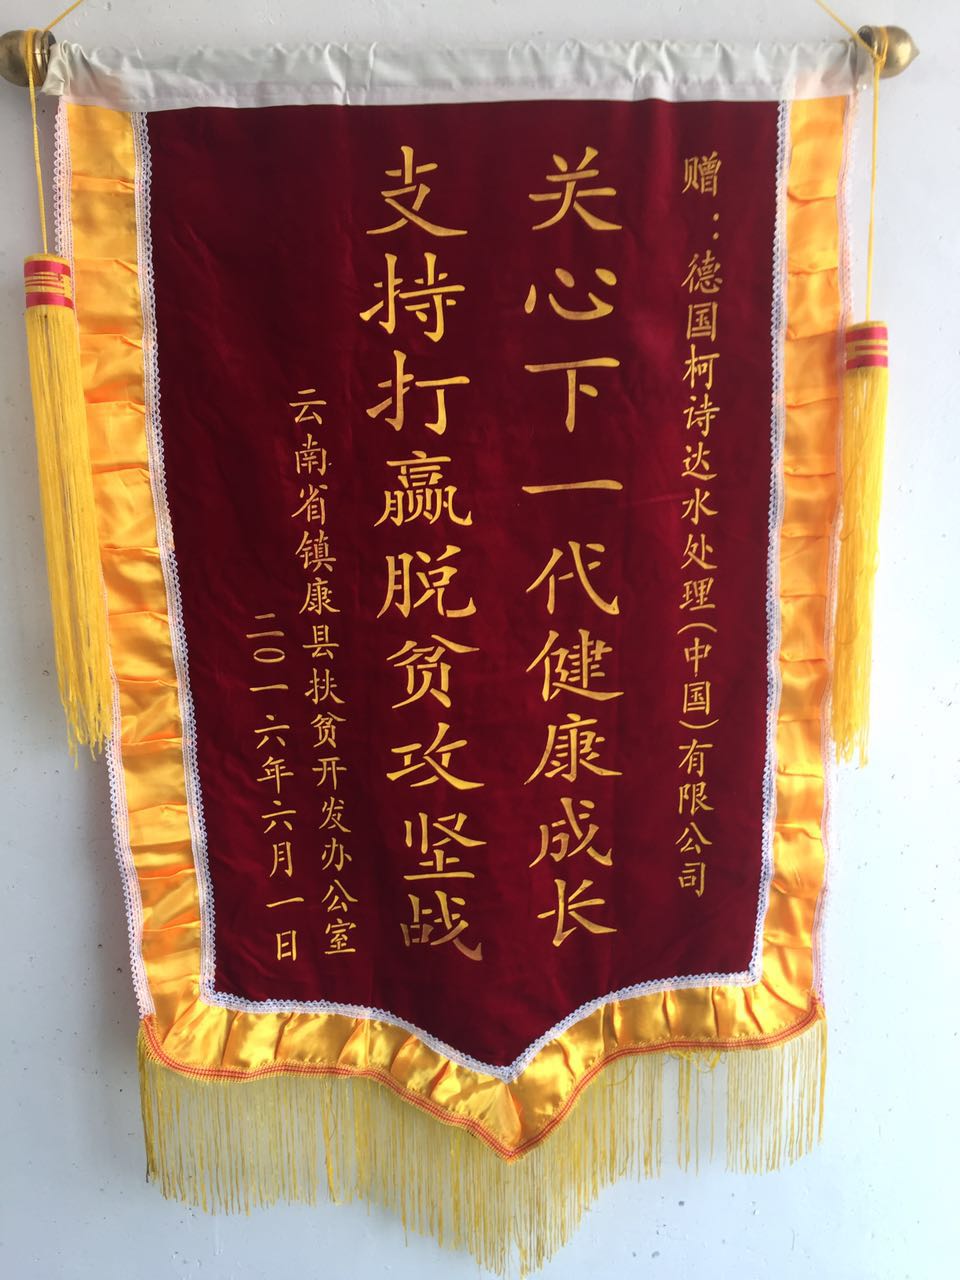 赠：德国柯诗达水处理(中国)有限公司
关心下一代健康成长
支持打赢脱贫攻坚战
云南省镇康县扶贫开发办公室
二〇一六年六月一日